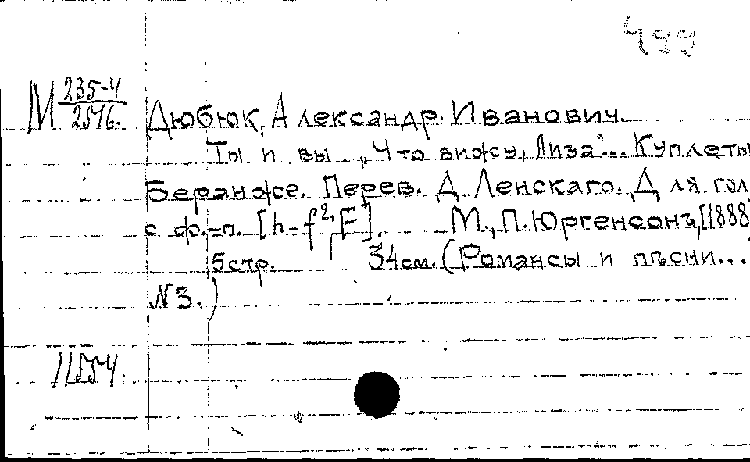 499
М 235-4/2546.
Дюбюк, Александр Иванович.
Ты и вы. „Что вижу, Лиза"... Куплеты
Беранже. Перев. Д. Ленскаго. Для гол
с ф.-п. [h-f², F]. М., П. Юргенсонъ, [1888
5 стр. 34 см. (Романсы и пѣсни...
№3.)